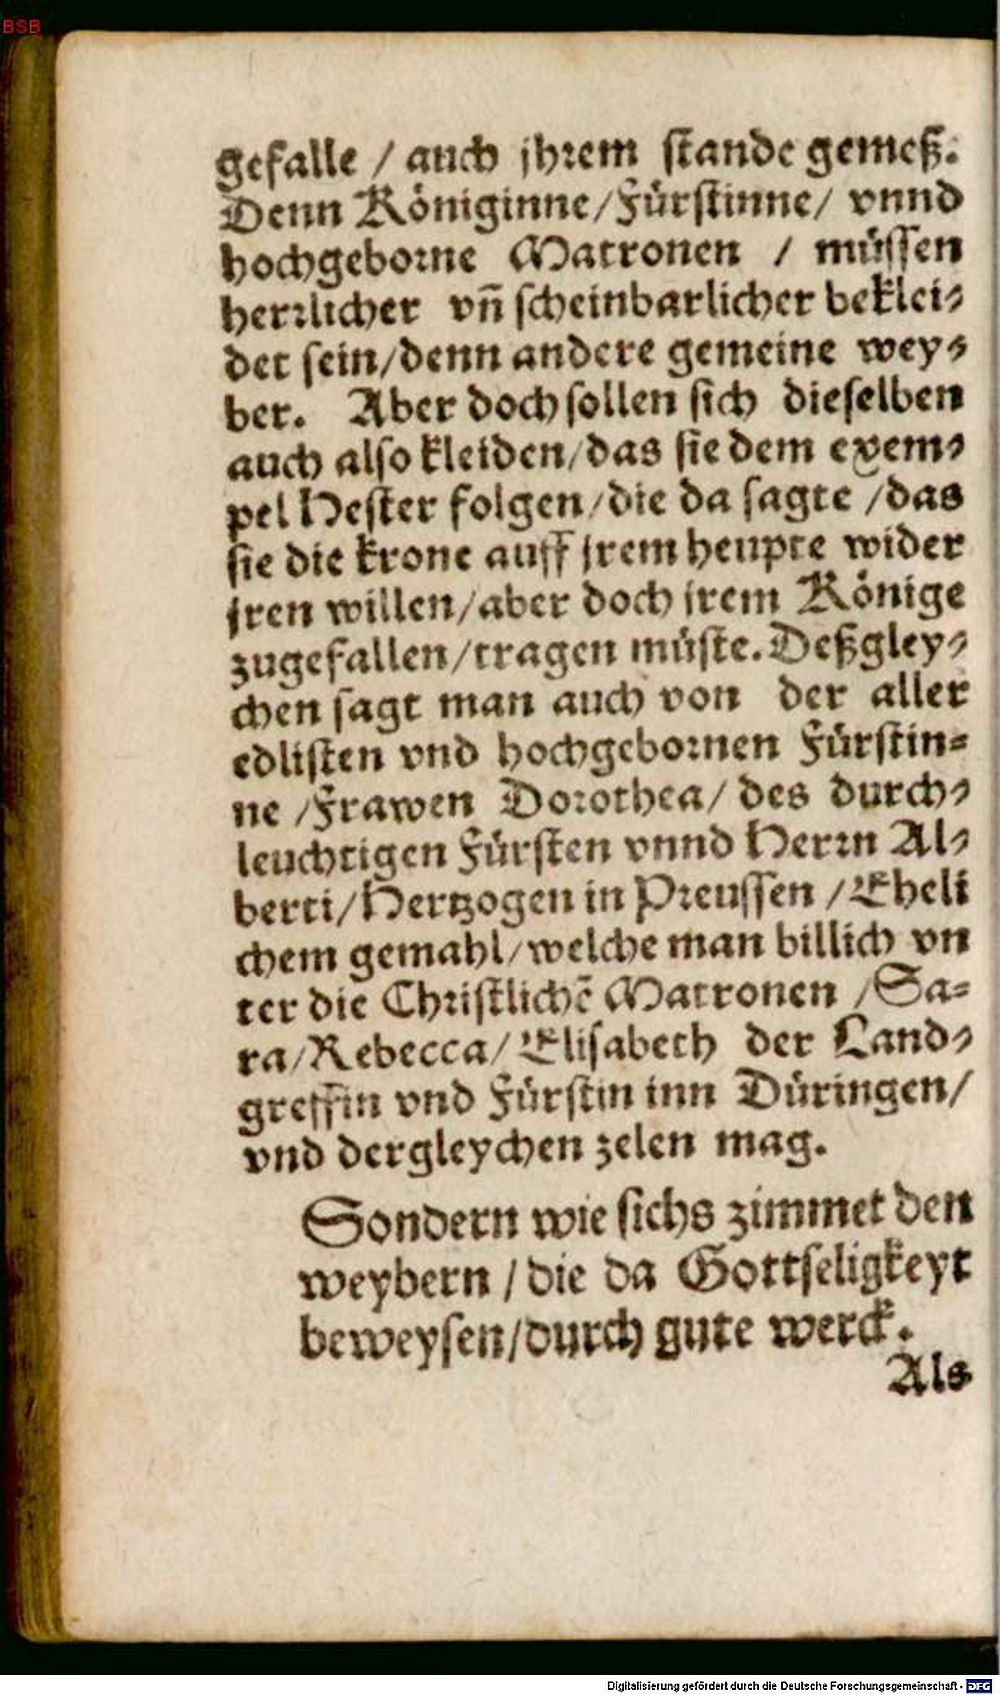 BSB
gefalle / auch jhrem stande gemeß.
Denn Königinne/Fürstinne/ vnnd
hochgeborne Matronen / müssen
herrlicher vñ scheinbarlicher beklei⸗
det sein/denn andere gemeine wey⸗
ber. Aber doch sollen sich dieselben
auch also kleiden/das sie dem exem⸗
pel Hester folgen/die da sagte /das
sie die krone auff jrem heupte wider
jren willen/aber doch jrem Könige
zugefallen/tragen müste. Deßgley⸗
chen sagt man auch von der aller
edlisten vnd hochgebornen Fürstin⸗
ne /Frawen Dorothea/ des durch⸗
leuchtigen Fürsten vnnd Herrn Al⸗
berti/Hertzogen in Preussen /Eheli
chem gemahl/welche man billich vn
ter die Christlichẽ Matronen /Sa⸗
ra/Rebecca/Elisabeth der Land⸗
greffin vnd Fürstin inn Düringen/
vnd dergleychen zelen mag.
Sondern wie sichs zimmet den
weybern / die da Gottseligkeyt
beweysen/durch gute werck.
Als
Digitalisierung gefördert durch die Deutsche Forschungsgemeinschaft - DFG